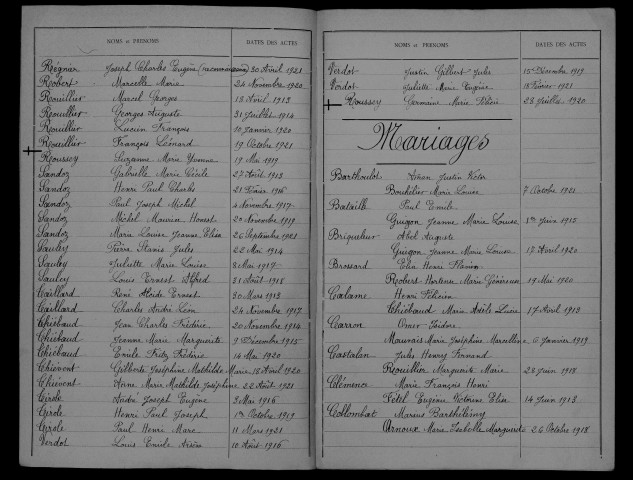 NOMS et PRÉNOMS DATES DES ACTES
Régnier Joseph Charles Eugène (reconnaissance) 30 Avril 1921
Robert Marcelle Marie 24 Novembre 1920
Rouillier Marcel Georges 18 Avril 1913
Rouillier Georges Auguste 31 Juillet 1914
Rouillier Lucien François 10 Janvier 1920
Rouillier François Léonard 19 Octobre 1921
Roussey Suzanne Marie Yvonne 19 Mai 1919
Sandoz Gabrielle Marie Cécile 27 Août 1913
Sandoz Henri Paul Charles 21 Février 1916
Sandoz Paul Joseph Michel 4 Novembre 1917
Sandoz Michel Maurice Honest 20 Novembre 1919
Sandoz Marie Louise Jeanne Elisa 26 Septembre 1921
Sauley Pierre Stanis Jules 22 Mai 1914
Sauley Juliette Marie Louise 8 Mai 1917
Sauley Louis Ernest Alfred 21 Août 1918
Taillard René Ernest 30 Mars 1913
Taillard Charles André Léon 24 Novembre 1917
Thiébaud Jean Charles Frédéric 20 Novembre 1914
Thiébaud Jeanne Marie Marguerite 9 Décembre 1915
Thiébaud Emile Fritz Frédéric 14 Mai 1920
Thiévent Gilberte Joséphine Mathilde Marie 18 Avril 1920
Thiévent Anne Marie Mathilde Joséphine 22 Août 1921
Tirole André Joseph Eugène 3 Mai 1916
Tirole Henri Paul Joseph 1er Octobre 1919
Tirole Paul Henri Marc 11 Mars 1921
Verdot Louis Emile Arsène 10 Août 1916
NOMS et PRÉNOMS DATES DES ACTES
Verdot Justin Gilbert Jules 15 Décembre 1919
Verdot Juliette Marie Eugène 18 Février 1921
Roussey Germaine Marie 28 Juillet 1920
Mariages
Barthoulot Justin Victor
Bouhélier Marie Louise 7 Octobre 1921
Bataille Paul Emile
Guigon Jeanne Marie Louise 1er Juin 1915
Briqueleur Abel Auguste
Guigon Jeanne Marie Louise 17 Avril 1920
Brossard Henri
Robert Hortense Marie Geneviève 19 Mai 1920
Calame Henri Félicien
Thiébaud Marie Adèle Lucie 17 Avril 1913
Carron Omer Isidore
Mauvais Marie Joséphine Marcelline 6 Janvier 1919
Castalan Jules Henry Fernand
Rouillier Marguerite Marie 28 Juin 1918
Clémence Marie François Henri
Tétel Eugénie Victorine Elisa 14 Juin 1913
Collombat Marius Barthélémy
Arnoux Marie Isabelle Marguerite 26 Octobre 1918